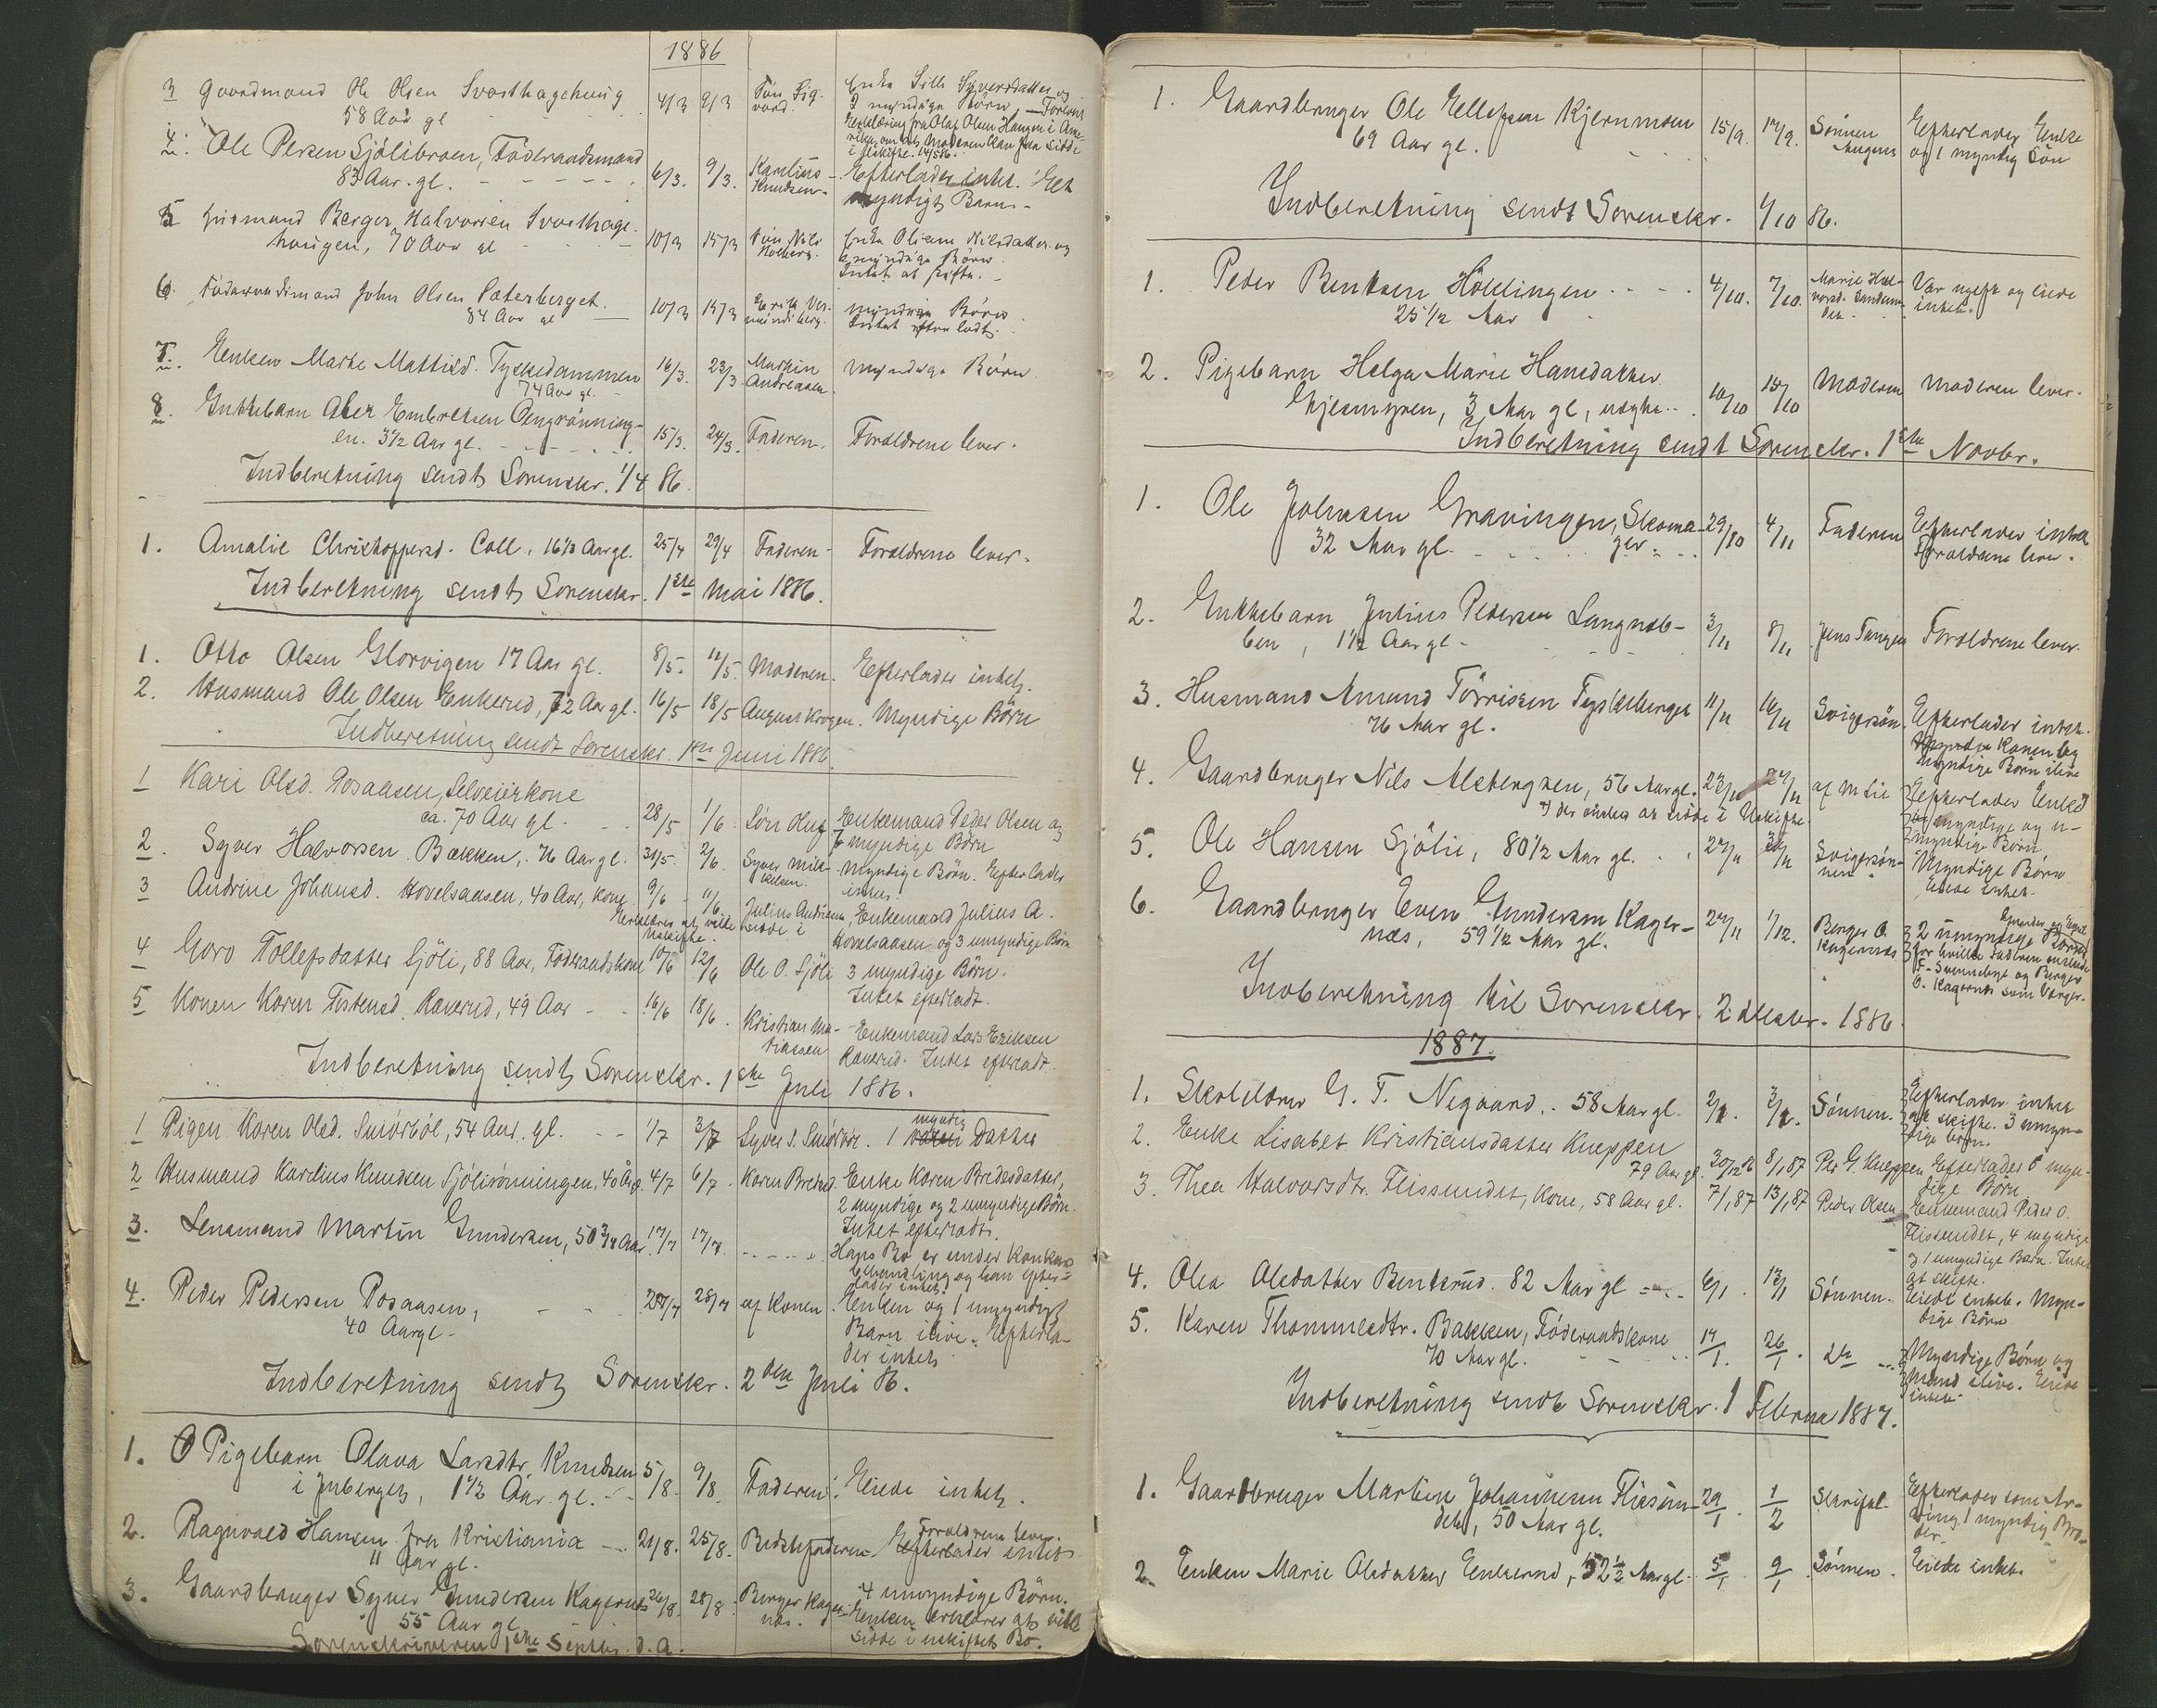 1886
3 Gaardmand Ole Olsen Svarthagehaug 4/3 9/3 Søn Sig- Enke Sille Syversdatter og
58 Aar gl vard. 3 myndige Börn. Forlovs
Erklæring fra Olaf Olsen Haugen i Ame-
rika om at Moderen kan faa sidde
i Uskifte.
4. Ole Persen Sjölibroen, Föderaadsmand
83 Aar. gl. 6/3. 9/3. Karelius Knudsen Efterlader intet. Et
myndigt Barn.
5 Husmand Berger Halvorsen Svarthage-
haugen, 70 Aar gl 10/3 15/3 Søn Nils Enke Oliane Nilsdatter og
myndige Börn.
Intet at skifte.
6. Föderaadsmand John Olsen Sæterberget.
84 Aar gl 10/3 15/3 Erik Ver- myndige Börn.
mundsberg. Intet efterladt.
7. Enken Marte Mattisd. Tyskedammen 16/3. 23/3. Martin myndige Börn.
74 Aar gl. Andreasen.
8. Guttebarn Aber Embretsen Oengrönning-
en. 3½ Aar gl. 15/3. 24/3. Faderen. Foraldrene lever.
Indberetning sendt Sorenskr. 1/4 86.
1. Amalie Christoffersd. Coll, 16⅓ Aar gl. 25/4 29/4 Faderen Foraldrene lever.
Indberetning sendt Sorenskr. 1ste Mai 1886.
1. Otto Olsen Glorvigen 17 Aar gl. 8/5. 12/5. Moderen. Efterlader intet.
2. Husmand Ole Olsen Enkerud, 72 Aar gl. 16/5 18/5 August Krogen. Myndige Börn
Indberetning sendt Sorenskr. 1ste Juni 1886.
1 Kari Olsd. Posaasen, Selveierkone
ca. 70 Aar gl. 28/5 1/6. Søn Oluf Enkemand Peder Olsen og
7 myndige Börn
2. Syver Halvorsen Bækken, 76 Aar gl. 31/5. 2/6 Syver Mik- Myndige Börn. Efterlader
kelsen. intet.
3 Andrine Johansd. Hovelsaasen, 40 Aar, kone 9/6 11/6 Julius Andersen, Enkemand Julius A.
Erklærer at ville sidde i Hovelsaasen og 3 umyndige Börn
Uskifte.
4 Goro Tollefsdatter Sjöli, 88 Aar, Föderaadskone 10/6 12/6 Ole O. Sjöli 3 myndige Börn.
Intet efterladt.
5 Konen Karen Torstensd. Raverud, 49 Aar 16/6 18/6. Kristian Ma- Enkemand Lars Eriksen
tiassen Raverud. Intet efterladt.
Indberetning sendt Sorenskr. 1ste Juli 1886.
1 Pigen Karen Olsd. Smörböl, 54 Aar. gl. 1/7 3/7 Syver S. Smörböl. 1 myndig Datter
2 Husmand Karelius Knudsen Sjölirönningen, 40 År gl. 4/7 6/7. Karen Bredesd. Enke Karen Bredesdatter,
2 myndige og 2 umyndige Börn.
Intet efterladt.
3. Lensmand Martin Gundersen, 50¾ Aar. 14/7 17/7. Hans Bo er under Konkurs
behandling og han efter-
lader intet.
4. Peder Pedersen Posaasen, 25/7 28/7 af Konen. Enken og 1 umyndigt
40 Aar gl. Barn ilive. Efterla-
der intet.
Indberetning sendt Sorenskr. 2den Juli 86.
1. Pigebarn Olava Larsdtr. Knudsen 5/8. 9/8 Faderen. Eiede intet.
i Juberget, 1½ Aar gl.
2. Ragnvald Hansen fra Kristiania 21/8. 25/8. Bedstefaderen Foraldrene lever.
11 Aar gl. Efterlader intet
3. Gaardbruger Syver Gundersen Kagernes 26/8. 28/8. Berger Kager- 4 umyndige Börn.
55 Aar gl. næs. Enken erklærer at ville
Sorenskriveren 1ste Septbr. d. A. sidde i uskiftet Bo.
1. Gaardbruger Ole Ellefsen Kjernmoen 15/9. 17/9. Sönnen Efterlader Enke
69 Aar gl. Magnus og 1 myndig Sön
Indberetning sendt Sorenskr. 1/10 86.
1. Peder Bentsen Höllingen 4/10. 7/10. Marie Hal- Var ugift og eiede
25½ Aar vorsd. intet.
2. Pigebarn Helga Marie Hansdatter
Gjesmyren, 3 Aar gl, uægte. 10/10 15/10 Moderen Moderen lever.
Indberetning sendt Sorenskr. 1ste Novbr.
1. Ole Johnsen Graningen, Skoma- 29/10 4/11 Faderen Efterlader intet
32 Aar gl. ger. Foraldrene lever.
2. Guttebarn Julius Pedersen Langneb-
ben, 1½ Aar gl. 3/11 8/11 Jens Tangen Foraldrene lever.
3. Husmand Amund Törrissen Tyskeberget 11/11 16/11 Svigersön. Efterlader intet.
76 Aar gl. Konen og
Myndige Börn ilive
4. Gaardbruger Nils Alsbergsen, 56 Aar gl. 23/11 27/11 af M Lie Efterlader Enke
x) der önsker at sidde i Uskifte. myndige og u-
myndige Börn.
5. Ole Hansen Sjölie, 80½ Aar gl. 27/11 Svigersön- Myndige Börn
nen Eiede intet.
6. Gaardbruger Even Gundersen Kager- 24/11 1/12. Berger O. 2 umyndige Börn
næs, 59½ Aar gl. Kagernæs for hvilke Faderen önskede
F. Svenneby og Berger
O. Kagernæs som Værger.
Indberetning til Sorenskr. 2 Decbr. 1886.
1887.
1. Skolelærer G. T. Negaard. 58 Aar gl. 2/1. 3/1. Sönnen. Efterlader intet
at skifte. 3 umyn-
dige börn.
2. Enke Lisabet Kristiansdatter Kneppen
79 Aar gl. 30/12 86 8/1 87 Per G. Kneppen Efterlader 5 myn-
dige Börn
3. Thea Halvorsdtr. Flissundet, Kone, 58 Aar gl. 7/1 87 13/1 87 Peder Olsen Enkemand Peder O.
Flissundet, 4 myndige
og 1 umyndige Barn. Intet
at skifte.
4. Olea Olsdatter Bentsrud. 82 Aar gl 6/1. 13/1 Sönnen. Eiede intet. Myn-
dige Börn.
5. Karen Thommesdtr. Bakken, Föderaadskone 14/1. 26/1. do Myndige Börn og
70 Aar gl. Mand ilive. Eiede
intet.
Indberetning sendt Sorenskr. 1 Februar 1887.
1. Gaardbruger Martin Johannesen Flissun- 29/1. 1/2 Skriftl. Efterlader som Ar-
det, 50 Aar gl. ving 1 myndig Bro-
der.
2. Enken Marie Olsdatter Enkerud, 52½ Aar gl. 5/1. 9/1 Sönnen. Eiede intet.